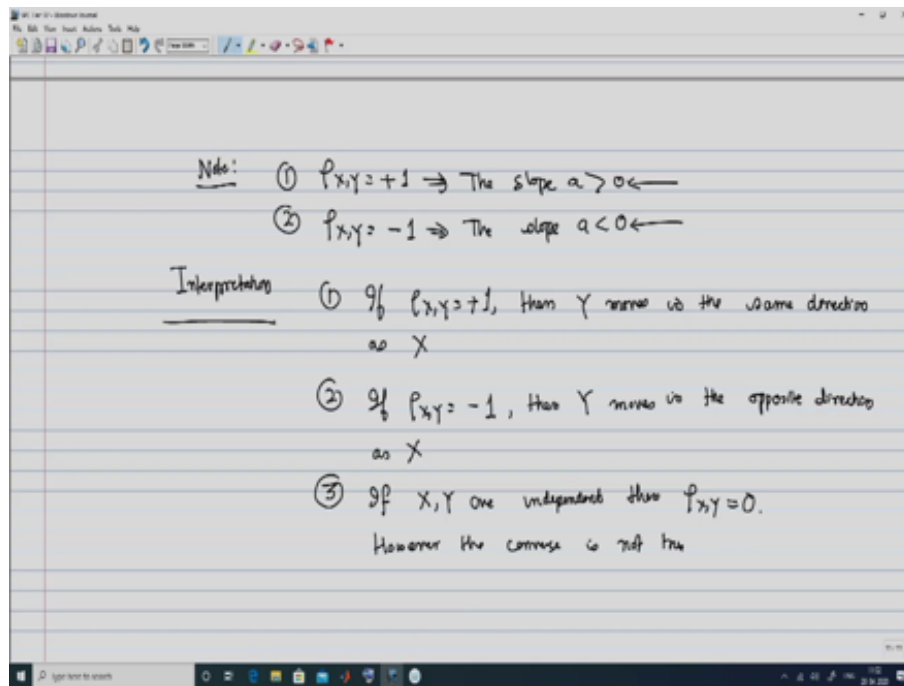 File Edit View Insert Actions Tools Help
Note: ① ρX,Y = +1 ⇒ The slope a > 0 ←
② ρX,Y = -1 ⇒ The slope a < 0 ←
Interpretation ① If ρX,Y = +1, then Y moves in the same direction
as X
② If ρX,Y = -1, then Y moves in the opposite direction
as X
③ If X, Y are independent then ρX,Y = 0.
However the converse is not true
Type here to search